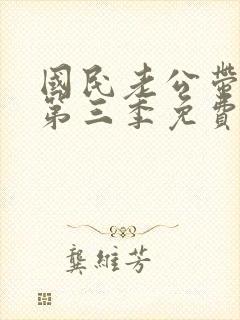 國民老公帶
第三季免費
龔維芳